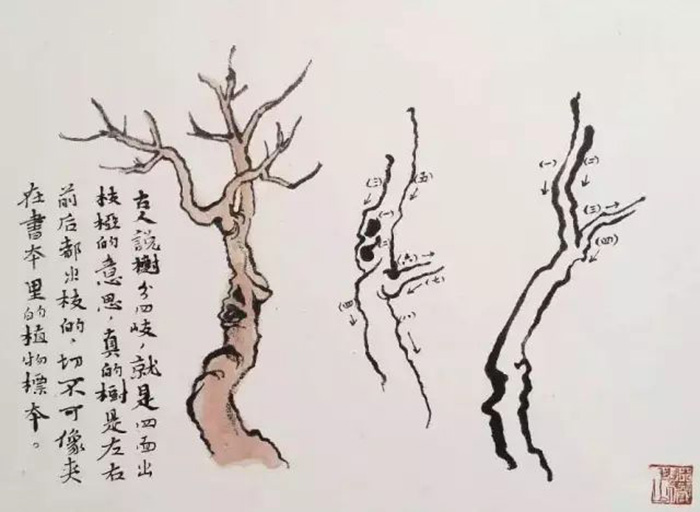 古人說樹分四歧，就是四面出
枝椏的意思，真的樹是左右
前后都出枝的，切不可像夾
在書本里的植物標本。
(三)
(五)
(一)
(二)
(六)
(七)
(四)
(八)
(一)
(二)
(三)
(四)